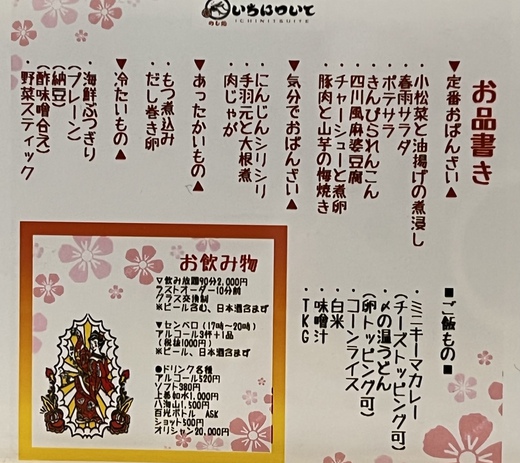 いちについて
ICHINITSUITE
お品書き
▼定番おばんざい▲
・小松菜と油揚げの煮浸し
・春雨サラダ
・ポテサラ
・きんぴられんこん
・四川風麻婆豆腐
・チャーシューと煮卵
・豚肉と山芋の梅焼き
▼気分でおばんざい▲
・にんじんシリシリ
・手羽元と大根煮
・肉じゃが
▼あったかいもの▲
・もつ煮込み
・だし巻き卵
▼冷たいもの▲
・海鮮ぶつぎり
(プレーン)
(納豆)
(酢味噌合え)
・野菜スティック
■ご飯もの■
・ミニキーマカレー
(チーズトッピング可)
・〆の温うどん
(卵トッピング可)
・コーンライス
・白米
・味噌汁
・TKG
お飲み物
▽飲み放題90分2,000円
ラストオーダー10分前
グラス交換制
※ビール含む、日本酒含まず
▼センベロ(17時〜20時)
アルコール3杯+1品
(税抜1000円)
※ビール、日本酒含まず
●ドリンク各種
アルコール520円
ソフト380円
上善如水1,000円
八海山1,500円
百光ボトル ASK
ショット500円
オリシャン20,000円